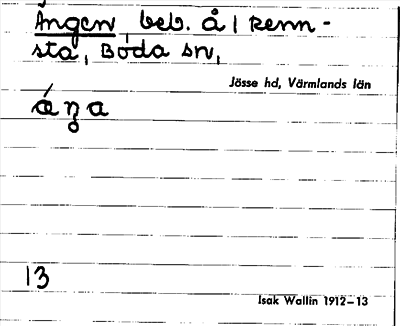 Ängen, beb. å Renn-
sta, Boda sn,
Jösse hd, Värmlands län
áŋa
13
Isak Wallin 1912–13